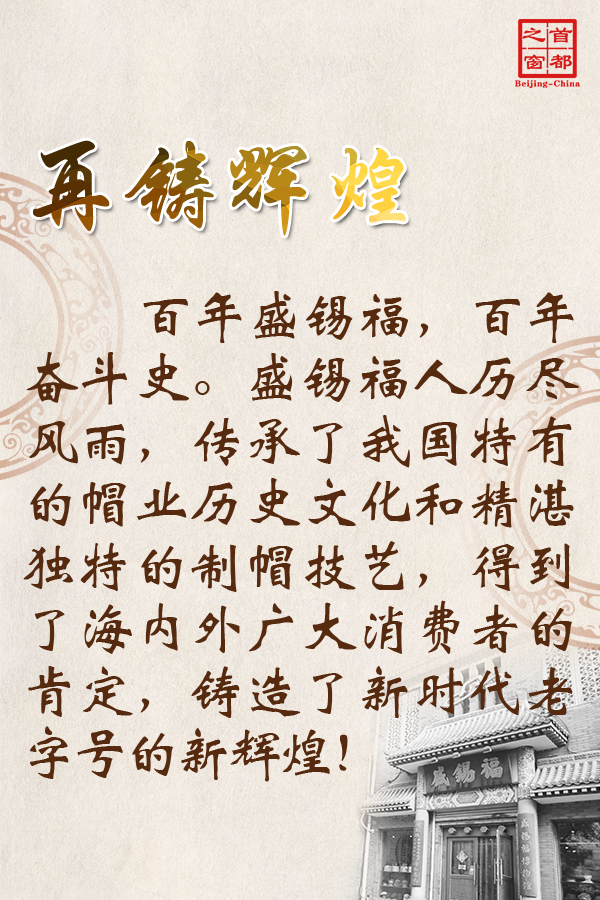 首都
之窗
Beijing-China
再铸辉煌
百年盛锡福，百年
奋斗史。盛锡福人历尽
风雨，传承了我国特有
的帽业历史文化和精湛
独特的制帽技艺，得到
了海内外广大消费者的
肯定，铸造了新时代老
字号的新辉煌！
盛锡福
盛锡福博物馆